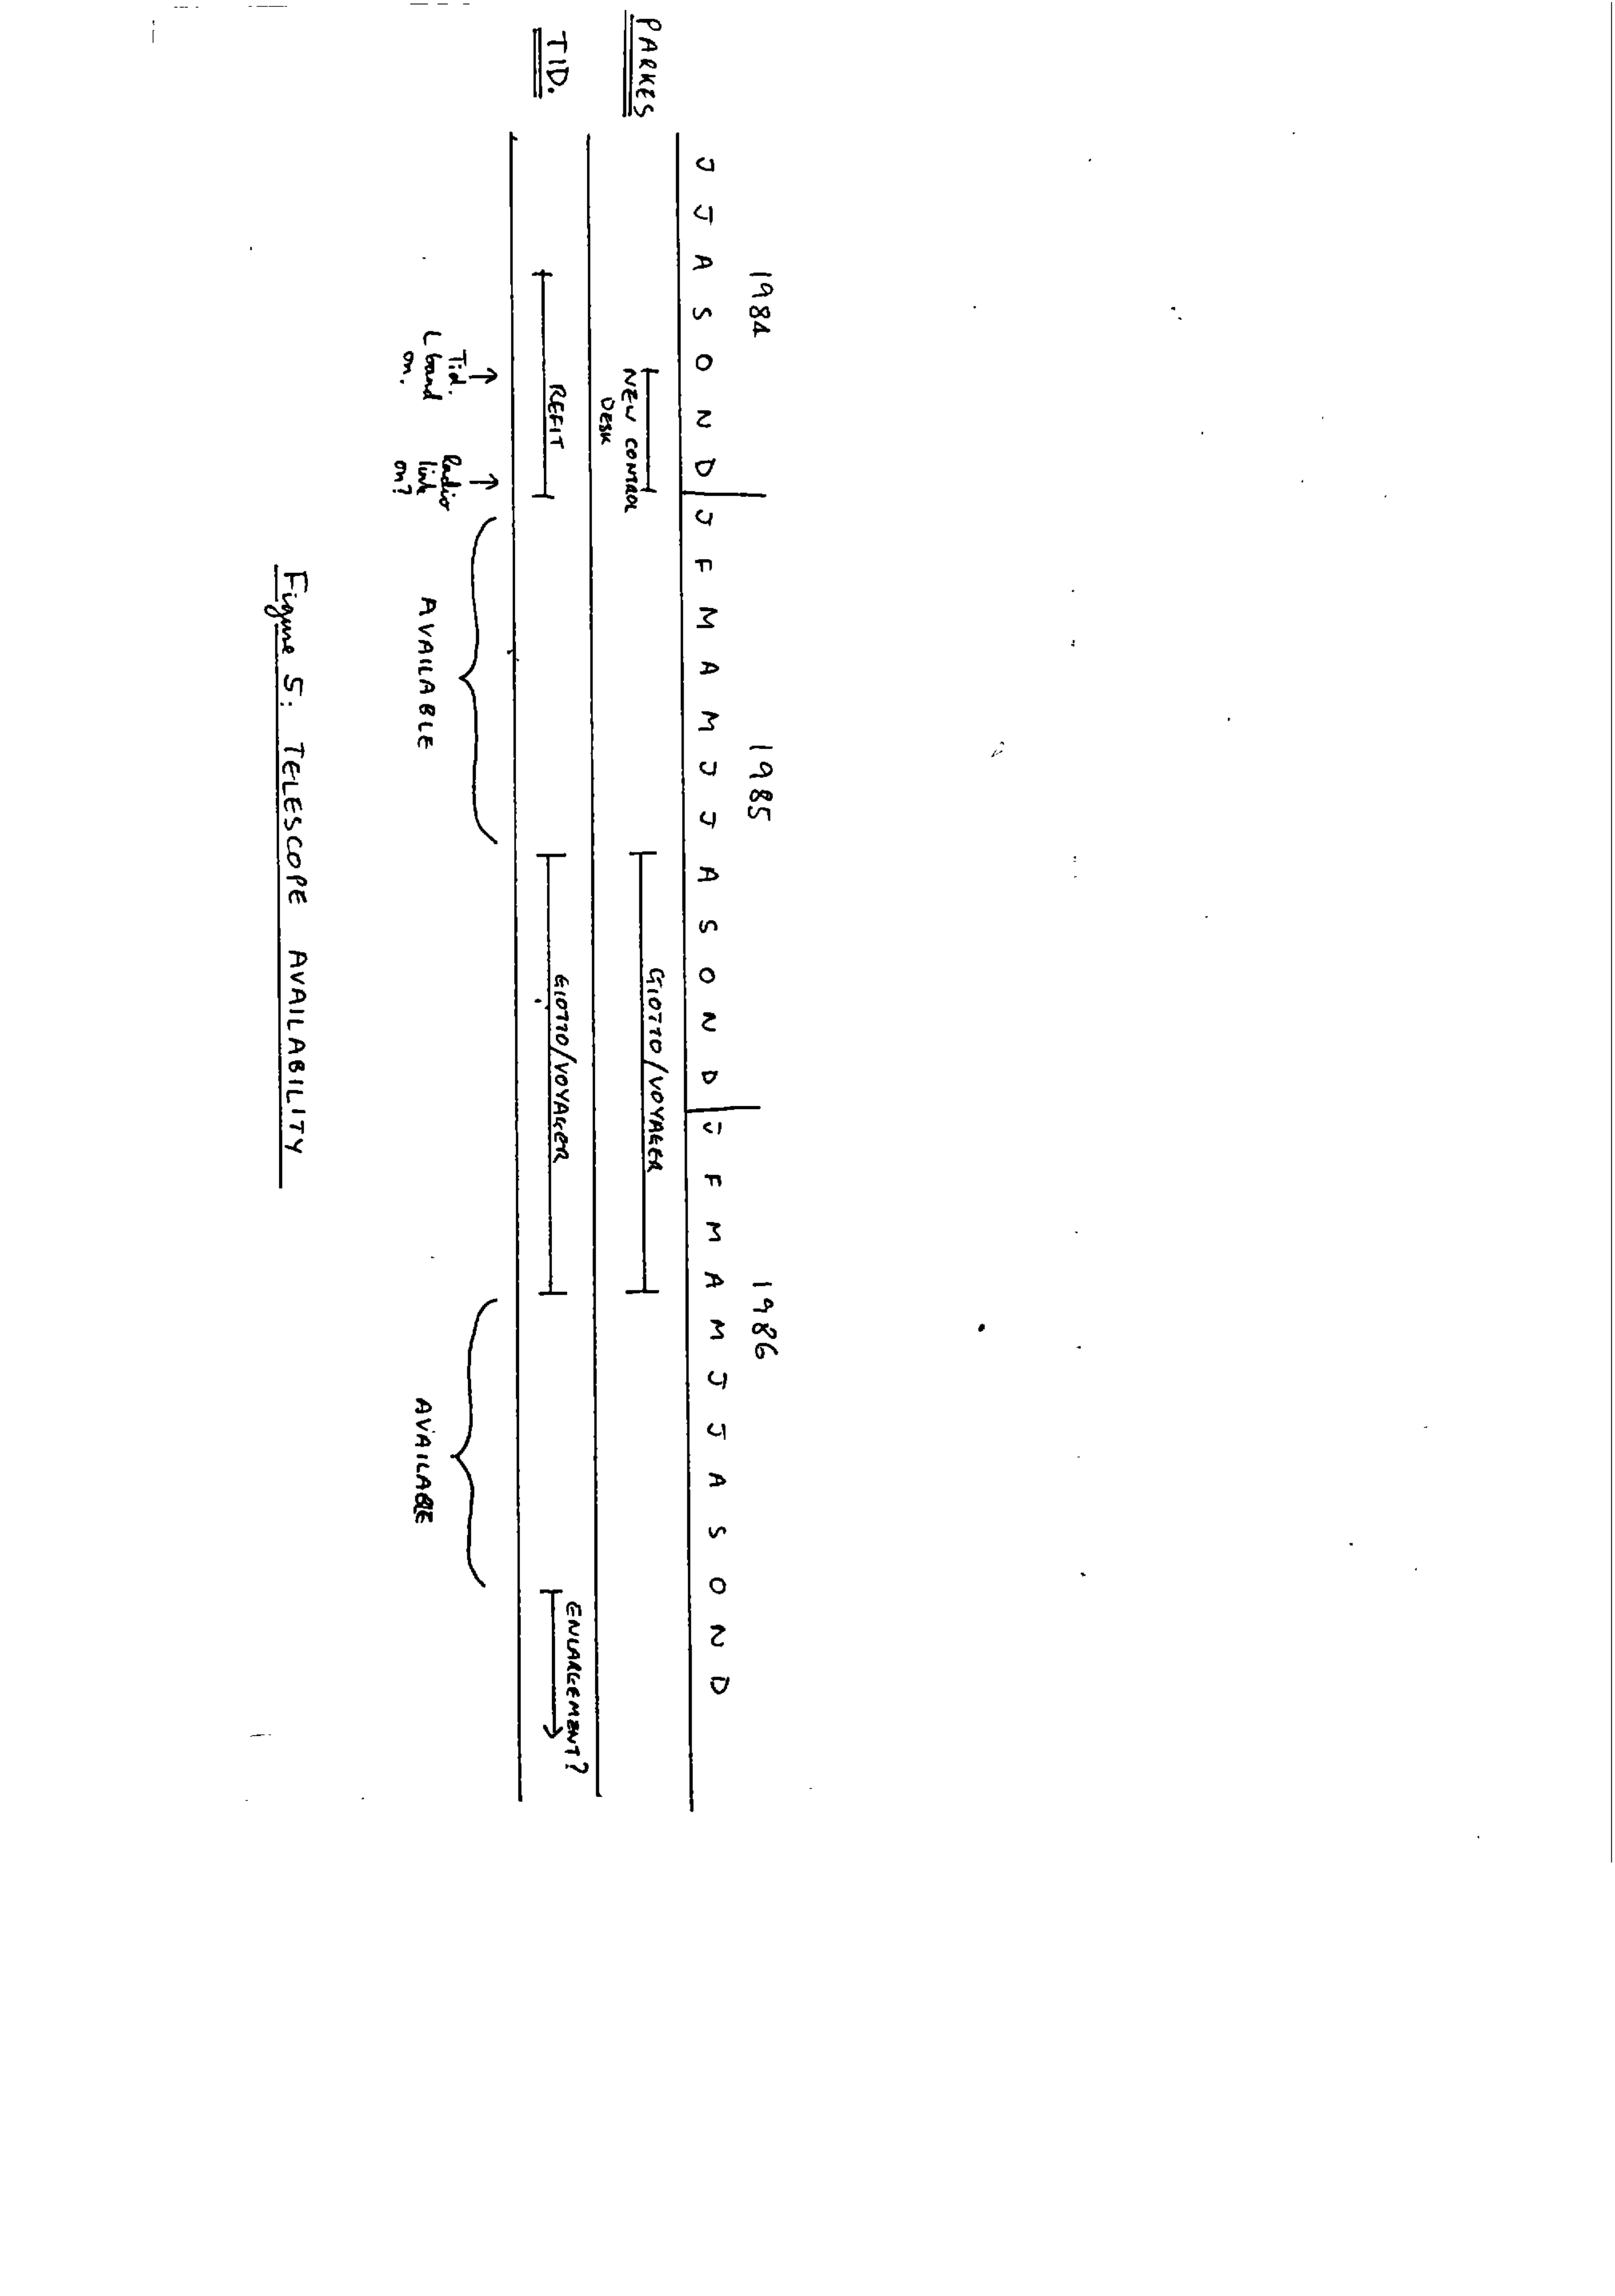 1984 1985 1986
J J A S O N D J F M A M J J A S O N D J F M A M J J A S O N D
PARKES
NEW CONTROL
DESK
GIOTTO/VOYAGER
TID.
REFIT
GIOTTO/VOYAGER
ENLARGEMENT?
Tid.
L band
on.
Radio
link
on?
AVAILABLE
AVAILABLE
Figure 5: TELESCOPE AVAILABILITY